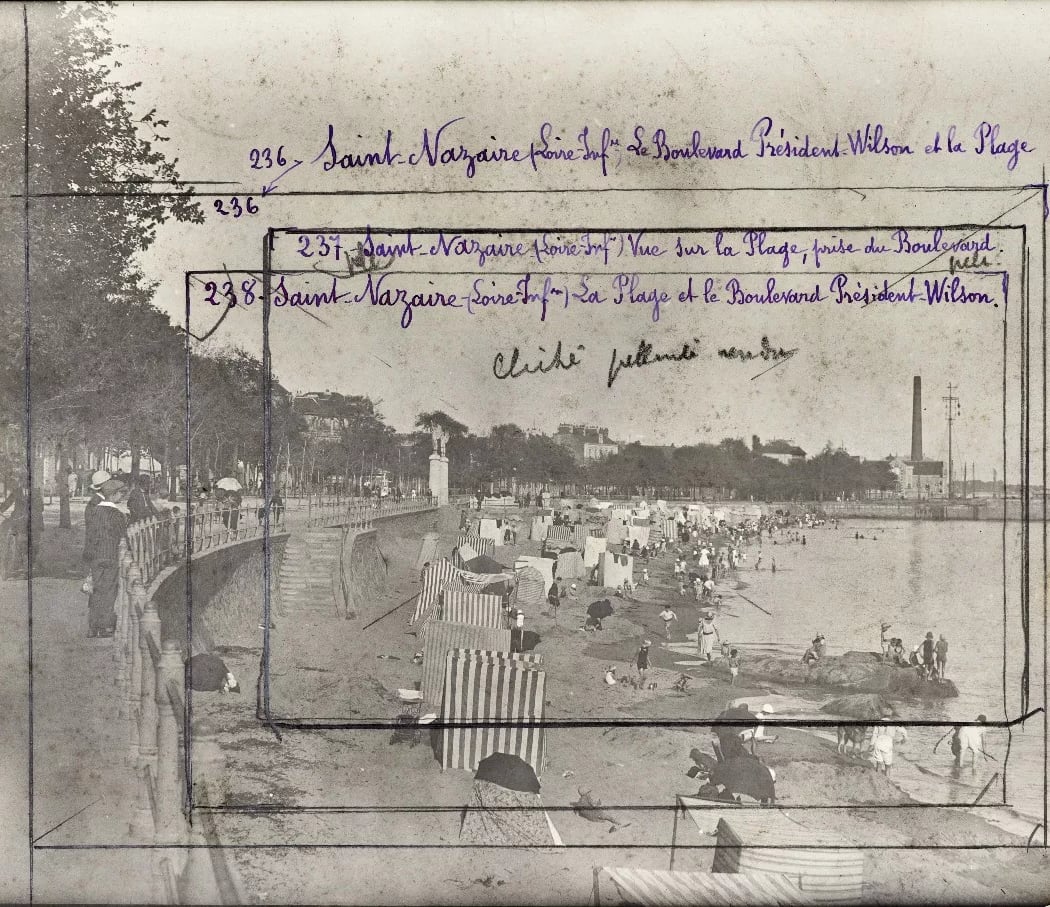 236 - Saint-Nazaire (Loire-Infre) Le Boulevard Président-Wilson et la Plage
236
237. Saint-Nazaire (Loire-Infre) Vue sur la Plage, prise du Boulevard.
238 - Saint-Nazaire - (Loire-Infre) La Plage et le Boulevard Président-Wilson.
Cliché